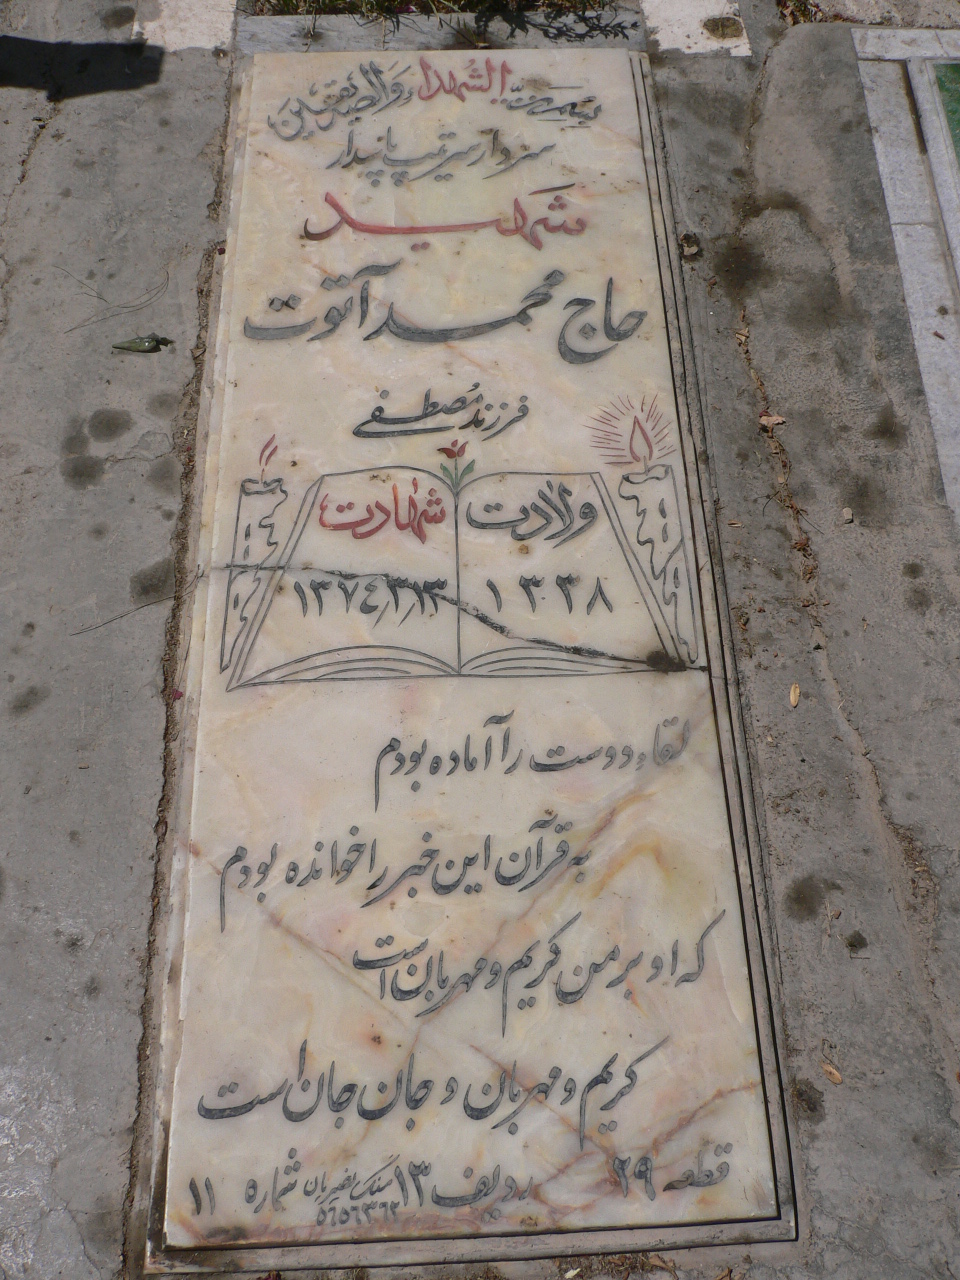 الشهداء والصدیقین
سردار سرتیپ پاسدار
شهید
حاج محمد آتوت
فرزند مصطفی
ولادت
شهادت
۱۳۳۸
۱۳۷٤٫۳٫۱۳
لقاء دوست را آماده بودم
به قرآن این خبر را خوانده بودم
که او بر من کریم و مهربان است
کریم و مهربان و جان جان است
قطعه ۲۹ ردیف ۱۳ شماره ۱۱
سنگ نصیریان